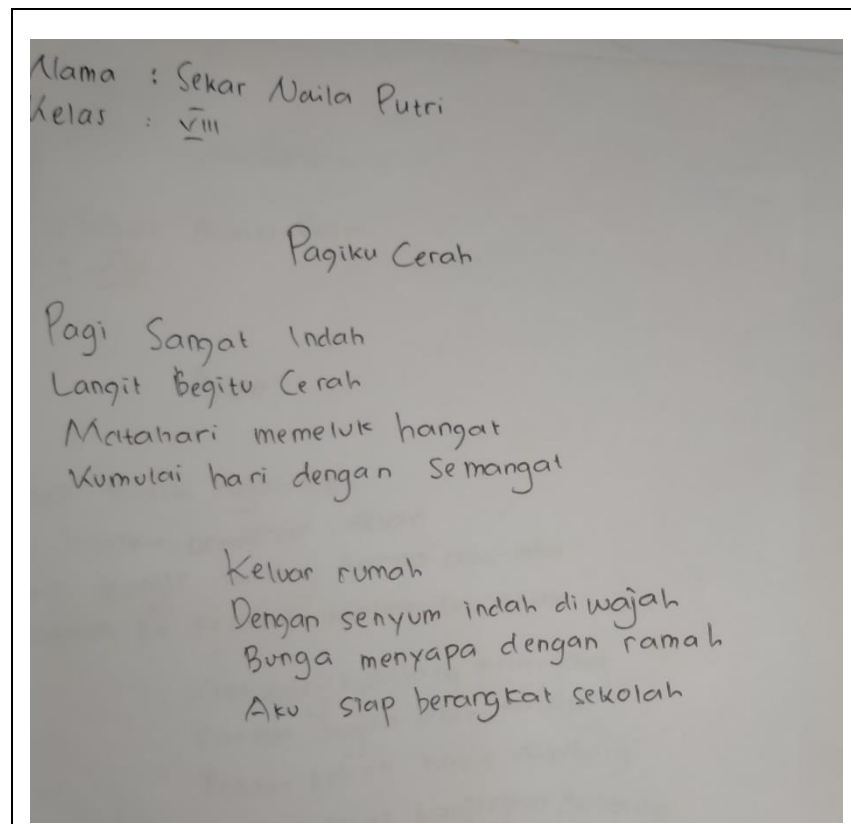 Nama : Sekar Naila Putri
Kelas : VIII
Pagiku Cerah
Pagi Sangat Indah
Langit Begitu Cerah
Matahari memeluk hangat
Kumulai hari dengan Semangat
Keluar rumah
Dengan senyum indah di wajah
Bunga menyapa dengan ramah
Aku siap berangkat sekolah